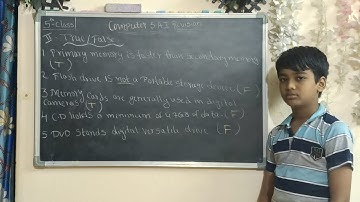 5th Class
Computer S A I Revision
II True/False
1 Primary memory is faster than secondary memory
(T)
2 Flash drive is not a Portable storage device (F)
3 Memory cards are generally used in digital
cameras (T)
4 CD holds a minimum of 4.7GB of data (F)
5 DVD stands digital versatile drive (F)